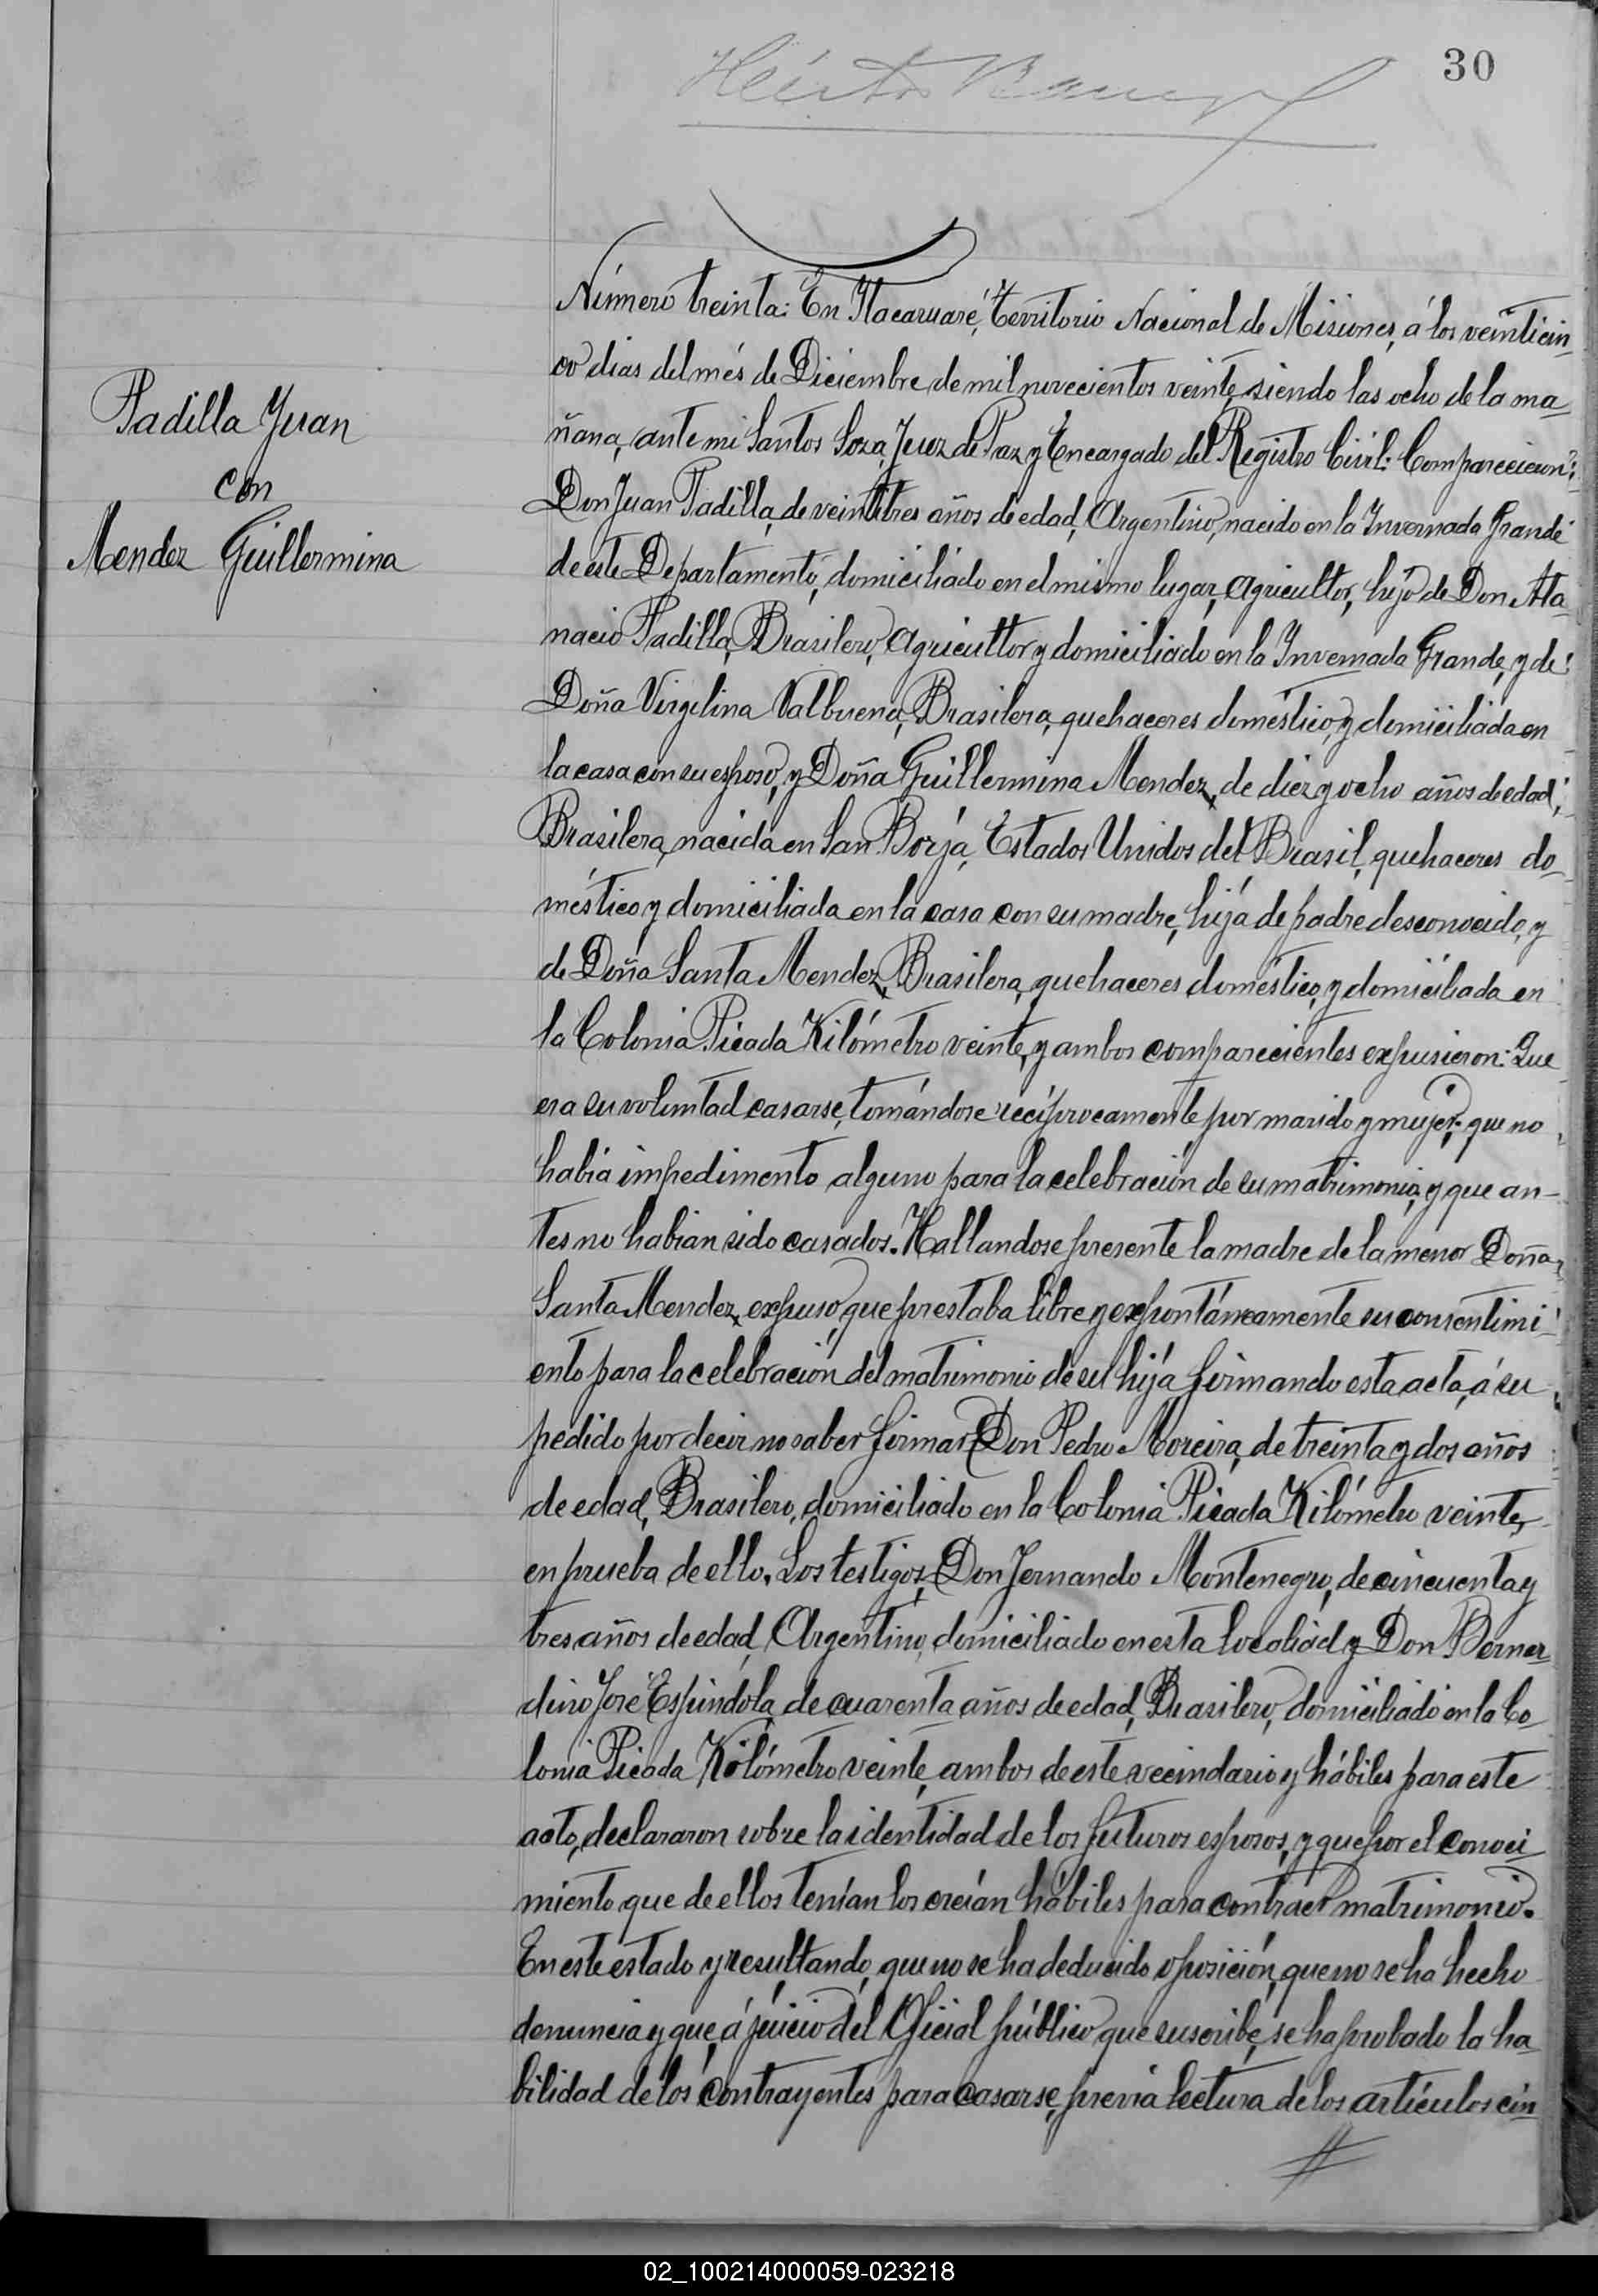 30
Padilla Juan
con
Mendez Guillermina
Número treinta: En Itacaruaré, Territorio Nacional de Misiones, á los veinticin
co dias del més de Diciembre de mil novecientos veinte, siendo las ocho de la ma
ñana, ante mi Santos Soza, Juez de Paz y Encargado del Registro Civil: Comparecieron:
Don Juan Padilla, de veintitres años de edad, Argentino, nacido en la Invernada Grande
de este Departamento, domiciliado en el mismo lugar, agricultor, hijo de Don Ata
nacio Padilla, Brasilero, agricultor y domiciliado en la Invernada Grande, y de
Doña Virgilina Valbuena, Brasilera, quehaceres doméstico, y domiciliada en
la casa con su esposo, y Doña Guillermina Mendez, de diez y ocho años de edad,
Brasilera, nacida en San Borja, Estados Unidos del Brasil, quehaceres do
méstico y domiciliada en la casa con su madre, hija de padre desconocido, y
de Doña Santa Mendez, Brasilera, quehaceres doméstico, y domiciliada en
la Colonia Picada Kilómetro veinte, y ambos comparecientes expusieron: Que
era su voluntad casarse, tomándose recíprocamente por marido y mujer, que no
habia impedimento alguno para la celebración de su matrimonio, y que an-
tes no habian sido casados. Hallandose presente la madre de la menor Doña
Santa Mendez, expuso, que prestaba libre y expontáneamente su consentimi
ento para la celebración del matrimonio de su hija firmando esta acta, á su
pedido por decir no saber firmar, Don Pedro Moreira, de treinta y dos años
de edad, Brasilero, domiciliado en la Colonia Picada Kilómetro veinte,
en prueba de ello. Los testigos, Don Fernando Montenegro, de cincuenta y
tres años de edad, Argentino, domiciliado en esta localiad y Don Bernar
dino José Espindola, de cuarenta años de edad, Brasilero, domiciliado en la Co
lonia Picada Kilómetro veinte, ambos de este vecindario y hábiles para este
acto, declararon sobre la identidad de los futuros esposos, y que por el conoci
miento que de ellos tenían los creián hábiles para contraer matrimonio.
En este estado y resultando, que no se ha deducido oposición, que no se ha hecho
denuncia y que, á juicio del Oficial público que suscribe, se ha probado la ha
bilidad de los contrayentes para casarse, previa lectura de los artículos cin
02_100214000059-023218